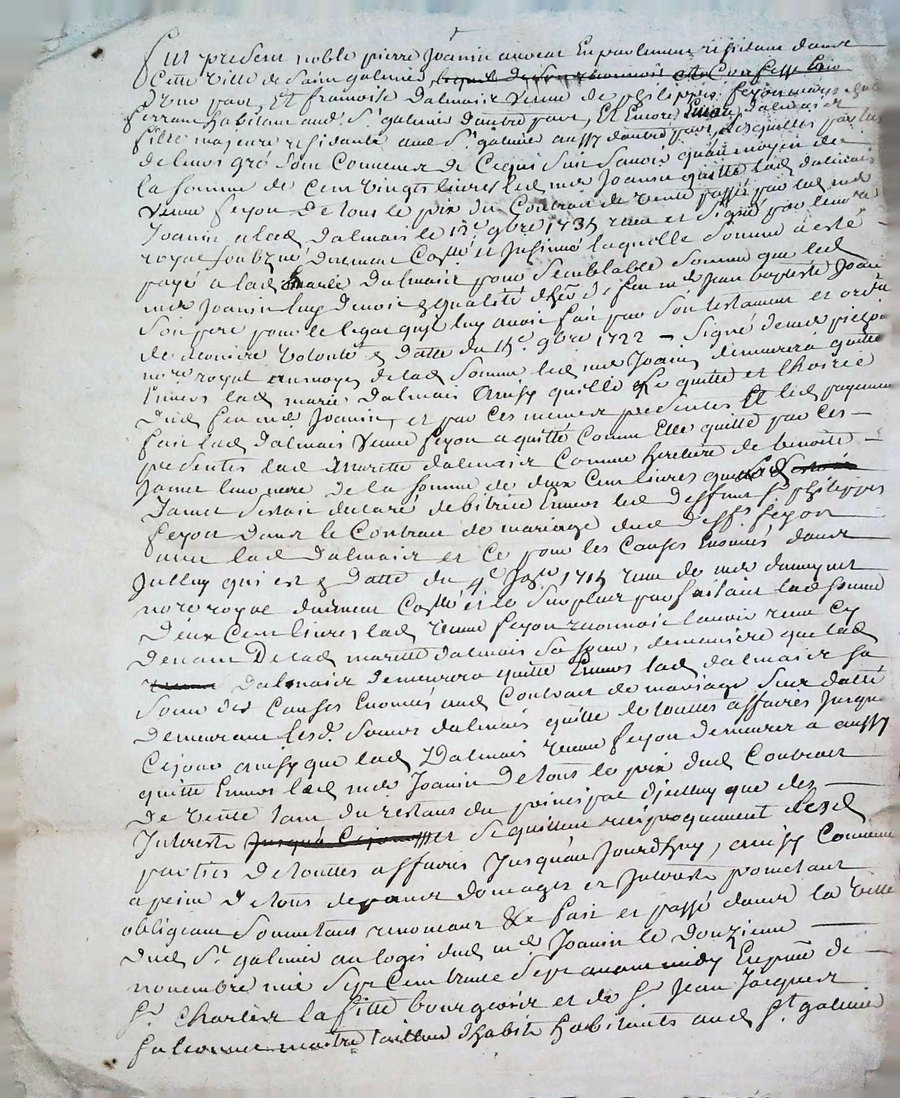 Fut present noble pierre Joanin avocat En parlement residant dans
Cette Ville de Saint galmier
D'une part, Et francoise Dalmais Veuve de philippes feyon
ferrant habitant aud St galmier dautre part, Et Encore Dalmaier
fille majeure residante aud St galmier aussy dautre part, Lesquelles parties
de leurs gré Sont Convenus de Cequi Suit Savoir quau moyen de
la Somme de Cent Vingts livres led me Joanin quitte lad dalmais
Veuve feyon De tous le prix du Contrat de Vente passé par led me
Joanin a lad Dalmais le 9bre 1735 recu et Signé par
royal Soubzné düement Collé et Insinué laquelle Somme a esté
payé a lad marie Dalmais pour Semblable Somme que led
me Joanin luy devoit qualité de feu me Jean baptiste Joanin
Son pere pour le legat quil luy avoit fait par Son testament et ord
de derniere Volonté datte du 9bre 1722 Signé
nore royal au moyen delad Somme led me Joanin demeurera quitte
Envers lad marie Dalmais Ainsy quille le quitte et lhoirie
Dud feu me Joanin, et par Ces memes presentes Et led payement
fait lad Dalmais Veuve feyon a quitté Comme Elle quitte par Ces
presentes lad mariette dalmais Comme heritiere de benoite
Jamet leur mere de la Somme de deux Cent livres que lad
Jamet Sestoit declaré debitrice Envers led deffunt Sr philippes
feyon Dans le Contrat de mariage dud defft feyon
avec lad Dalmais et Ce pour les Causes Enoncées dans
Jcelluy qui est datte du 4e 1715 recu de me
nore royal düement Collé et le Surplus parfaisant lad Somme
Deux Cent livres lad Veuve feyon reconnoit lavoir recu Cy
devant De lad mariette dalmais Sa Soeur, de maniere que lad
Dalmais demeurera quitte Envers lad dalmais Sa
Soeur des Causes Enoncés aud Contrat de mariage Sus datté
demeurant lesd. Soeurs dalmais quitte de toutes affaires Jusque
Cejour ainsy que lad Dalmais Veuve feyon demeure a aussy
quitte Envers led me Joanin De tous le prix dud Contrat
De Vente tant du restant du principal diceluy que des
Interests Jusqu'à Cejour et Se quittent reciproquement lesd
parties De toutes affaires Jusquau Jourdhuy, ainsy Convenu
a peine De tous despans domages et Interests promettant
obligeant Soumettant renonceant &c fait et passé dans la Ville
Dud St galmier au logis dud me Joanin le Douzieme
novembre mil Sept Cent trente Sept avant midy En pnce de
Sr Charles laffitte bourgeois et de Sr Jean Jacques
maitre tailleur d'habits habitants aud St galmier